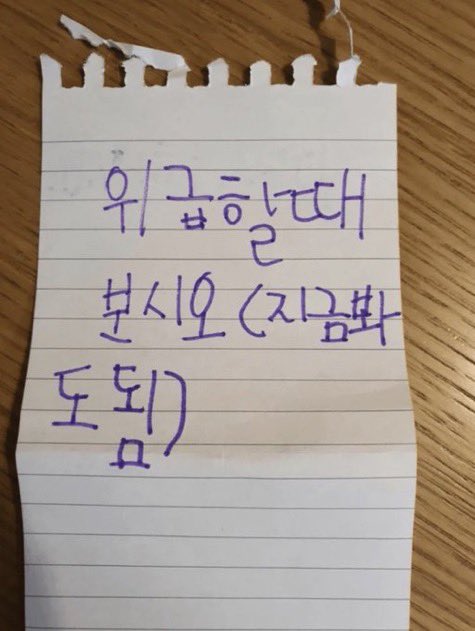 위급할때
분시오(지금봐
도됨)